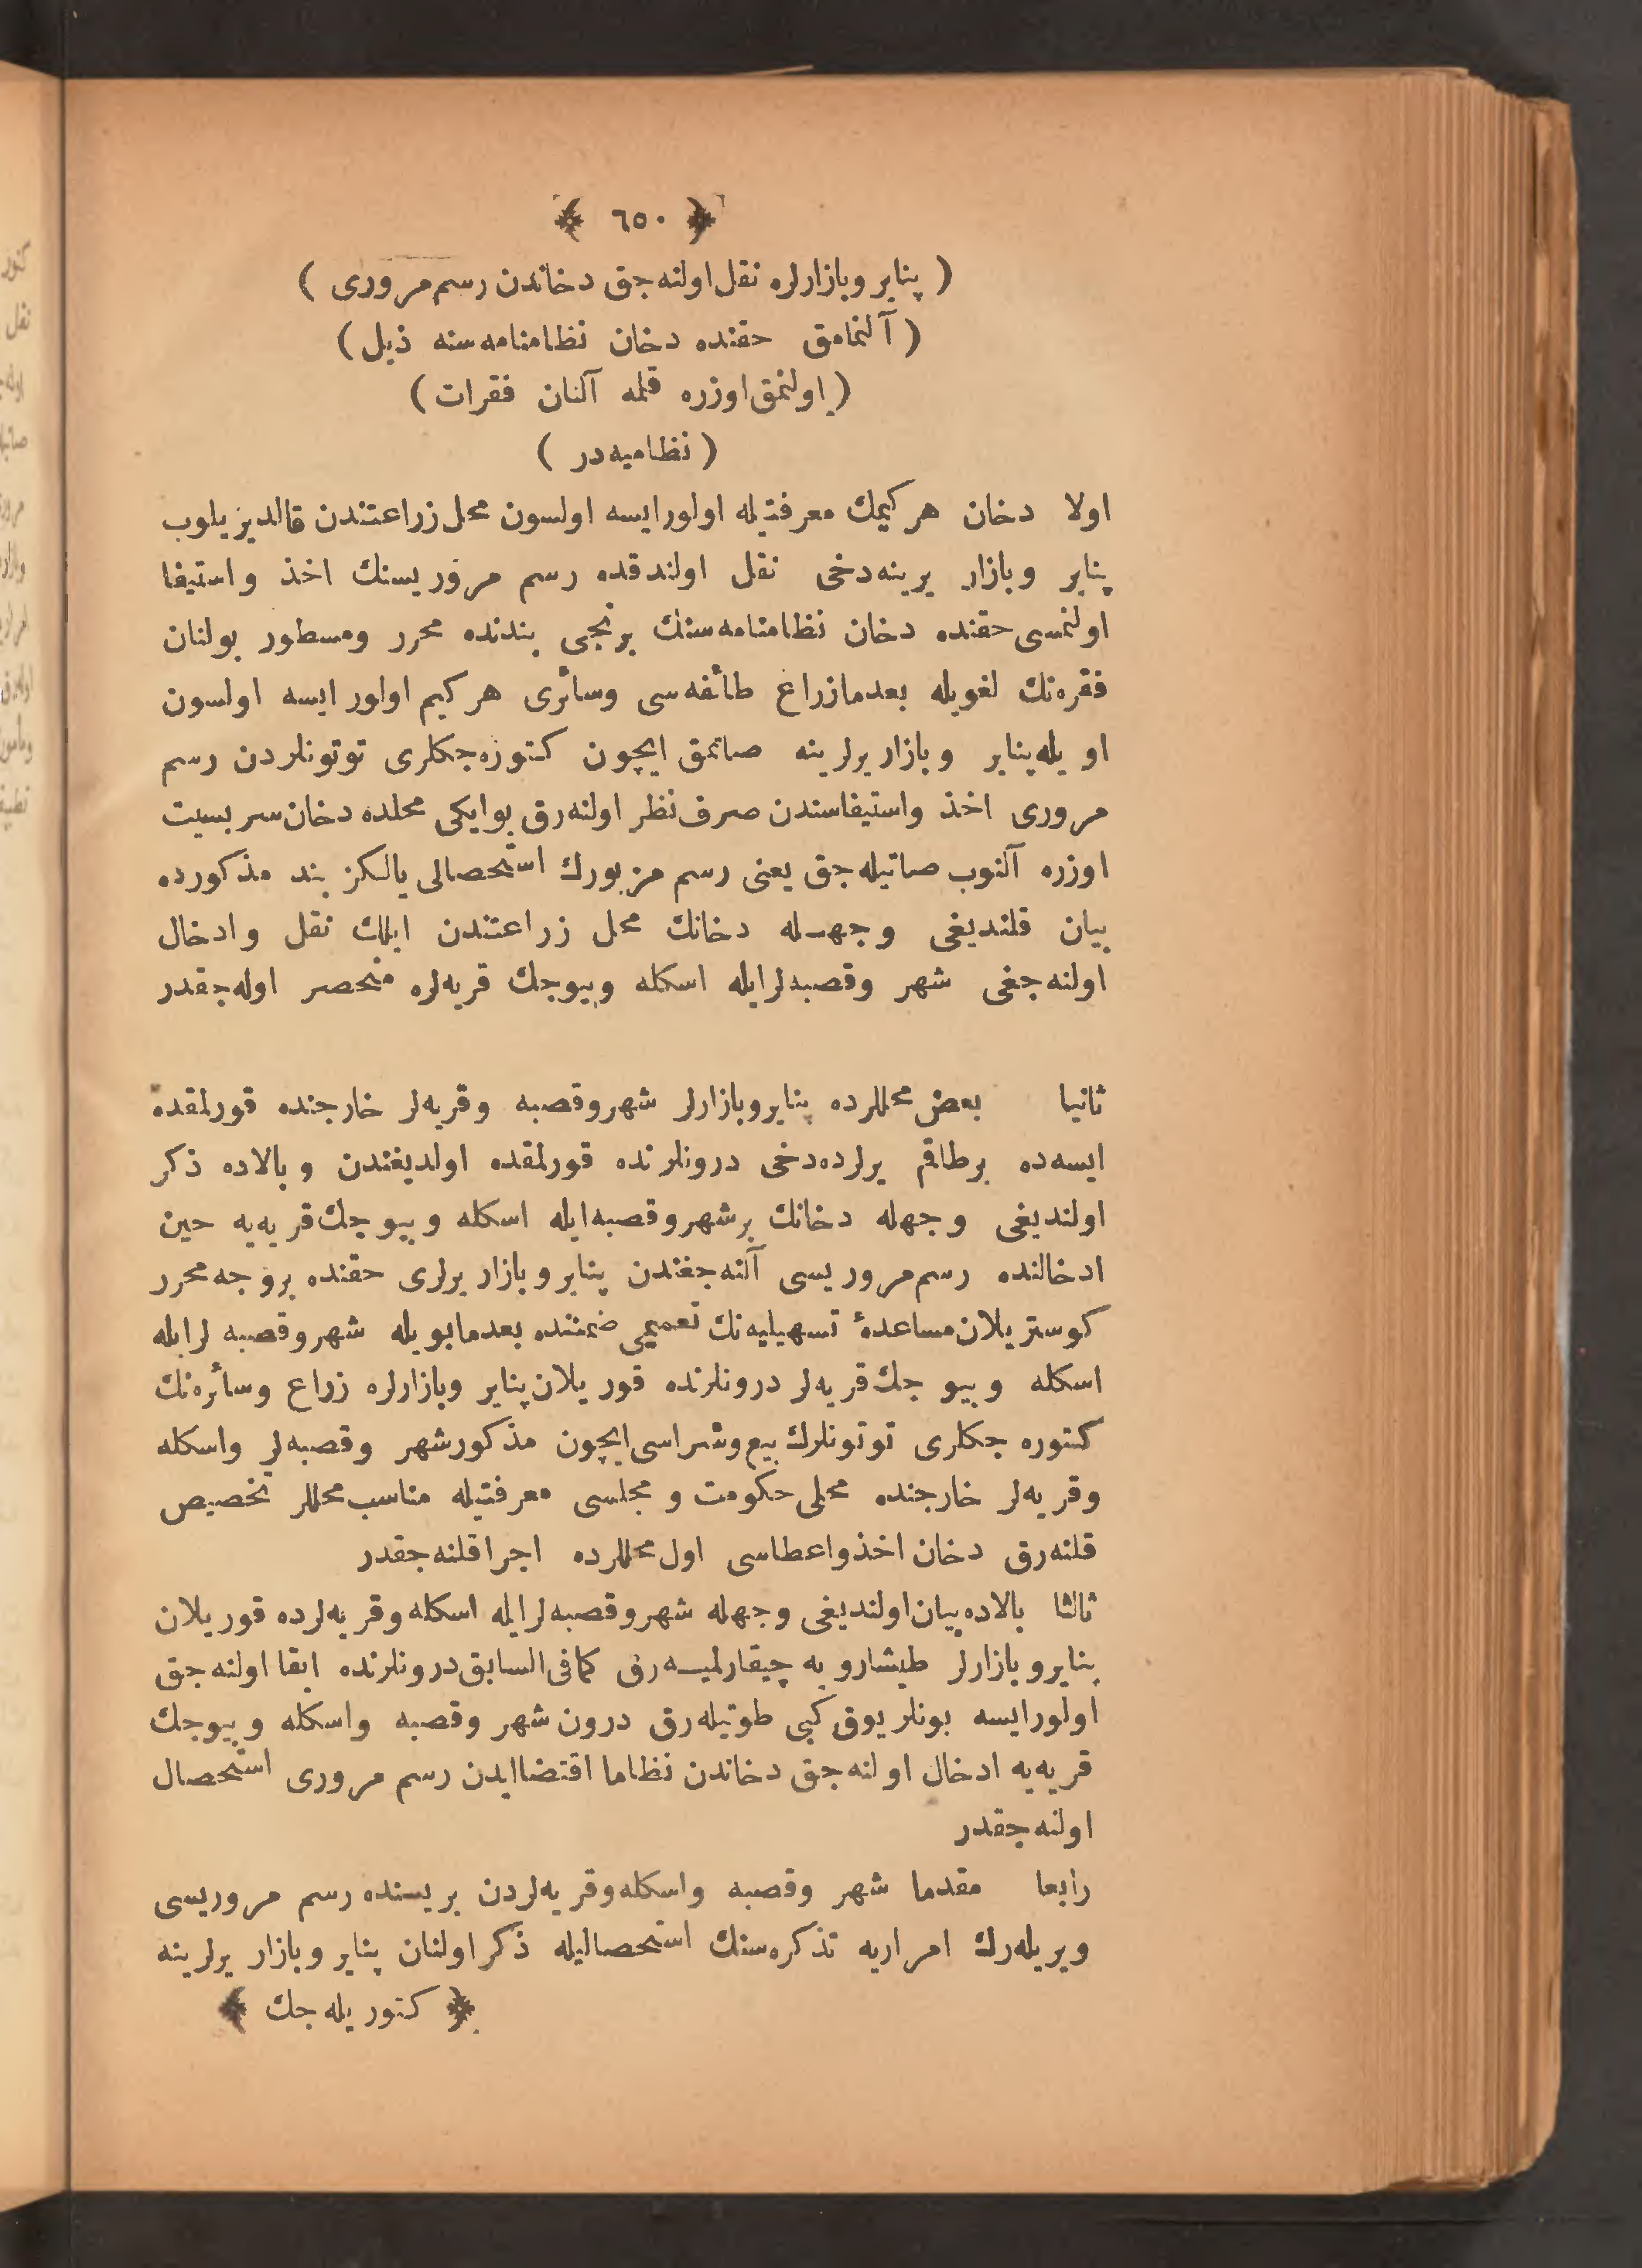 ﴿ ٦٥٠ ﴾
( پنایر وبازارلره نقل اولنه‌جق دخاندن رسم مروری )
( آلنمامق حقنده دخان نظامنامه‌سنه ذیل )
( اولنمق اوزره قلمه آلنان فقرات )
( نظامیه‌در )
اولا دخان هر کیمك معرفتیله اولورایسه اولسون محل زراعتندن قالدیریلوب
پنایر وبازار یرینه‌دخی نقل اولندقده رسم مروریسنك اخذ واستیفا
اولنمسی حقنده دخان نظامنامه‌سنك برنجی بندنده محرر ومسطور بولنان
فقره‌نك لغویله بعدما زراع طائفه‌سی وسائری هر کیم اولور ایسه اولسون
اویله پنایر وبازار یرلرینه صاتمق ایچون کتوره‌جکلری توتونلردن رسم
مروری اخذ واستیفاسندن صرف نظر اولنه‌رق بوایکی محلده دخان سربسیت
اوزره آلنوب صاتیله‌جق یعنی رسم مزبورك استحصالی یالکز بند مذکورده
بیان قلندیغی وجهـله دخانك محل زراعتندن ایلك نقل وادخال
اولنه‌جغی شهر وقصبه‌لرایله اسکله وبیوجك قریه‌لره منحصر اوله‌جقدر
ثانیا بعض محللرده پنایروبازارلر شهروقصبه وقریه‌لر خارجنده قورلمقده
ایسه‌ده برطاقم یرلرده‌دخی درونلرنده قورلمقده اولدیغندن وبالاده ذکر
اولندیغی وجهله دخانك برشهروقصبه‌ایله اسکله وبیوجك قریه‌یه حین
ادخالنده رسم مروریسی آلنه‌جغندن پنایروبازار یرلری حقنده بروجه محرر
کوستریلان مساعدهٔ تسهیلیه‌نك تعمیمی ضمننده بعدمابویله شهروقصبه لرایله
اسکله وبیوجك قریه‌لر درونلرنده قوریلان پنایر وبازارلره زراع وسائره‌نك
کتوره جکلری توتونلرك بیع وشراسی ایچون مذکورشهر وقصبه‌لر واسکله
وقریه‌لر خارجنده محلی حکومت و مجلسی معرفتیله مناسب محللر تخصیص
قلنه‌رق دخان اخذواعطاسی اول محللرده اجراقلنه‌جقدر
ثالثا بالاده بیان اولندیغی وجهله شهروقصبه‌لرایله اسکله وقریه‌لرده قوریلان
پنایروبازارلر طیشارویه چیقارلمیـه‌رق کمافی‌السابق درونلرنده ابقا اولنه‌جق
اولورایسه بونلر یوق کبی طوتیله‌رق درون شهر وقصبه واسکله وبیوجك
قریه‌یه ادخال اولنه‌جق دخاندن نظاما اقتضاایدن رسم مروری استحصال
اولنه‌جقدر
رابعا مقدما شهر وقصبه واسکله‌وقریه‌لردن بریسنده رسم مروریسی
ویریله‌رك امراریه تذکره‌سنك استحصالیله ذکراولنان پنایر وبازار یرلرینه
﴿ کتوریله‌جك ﴾